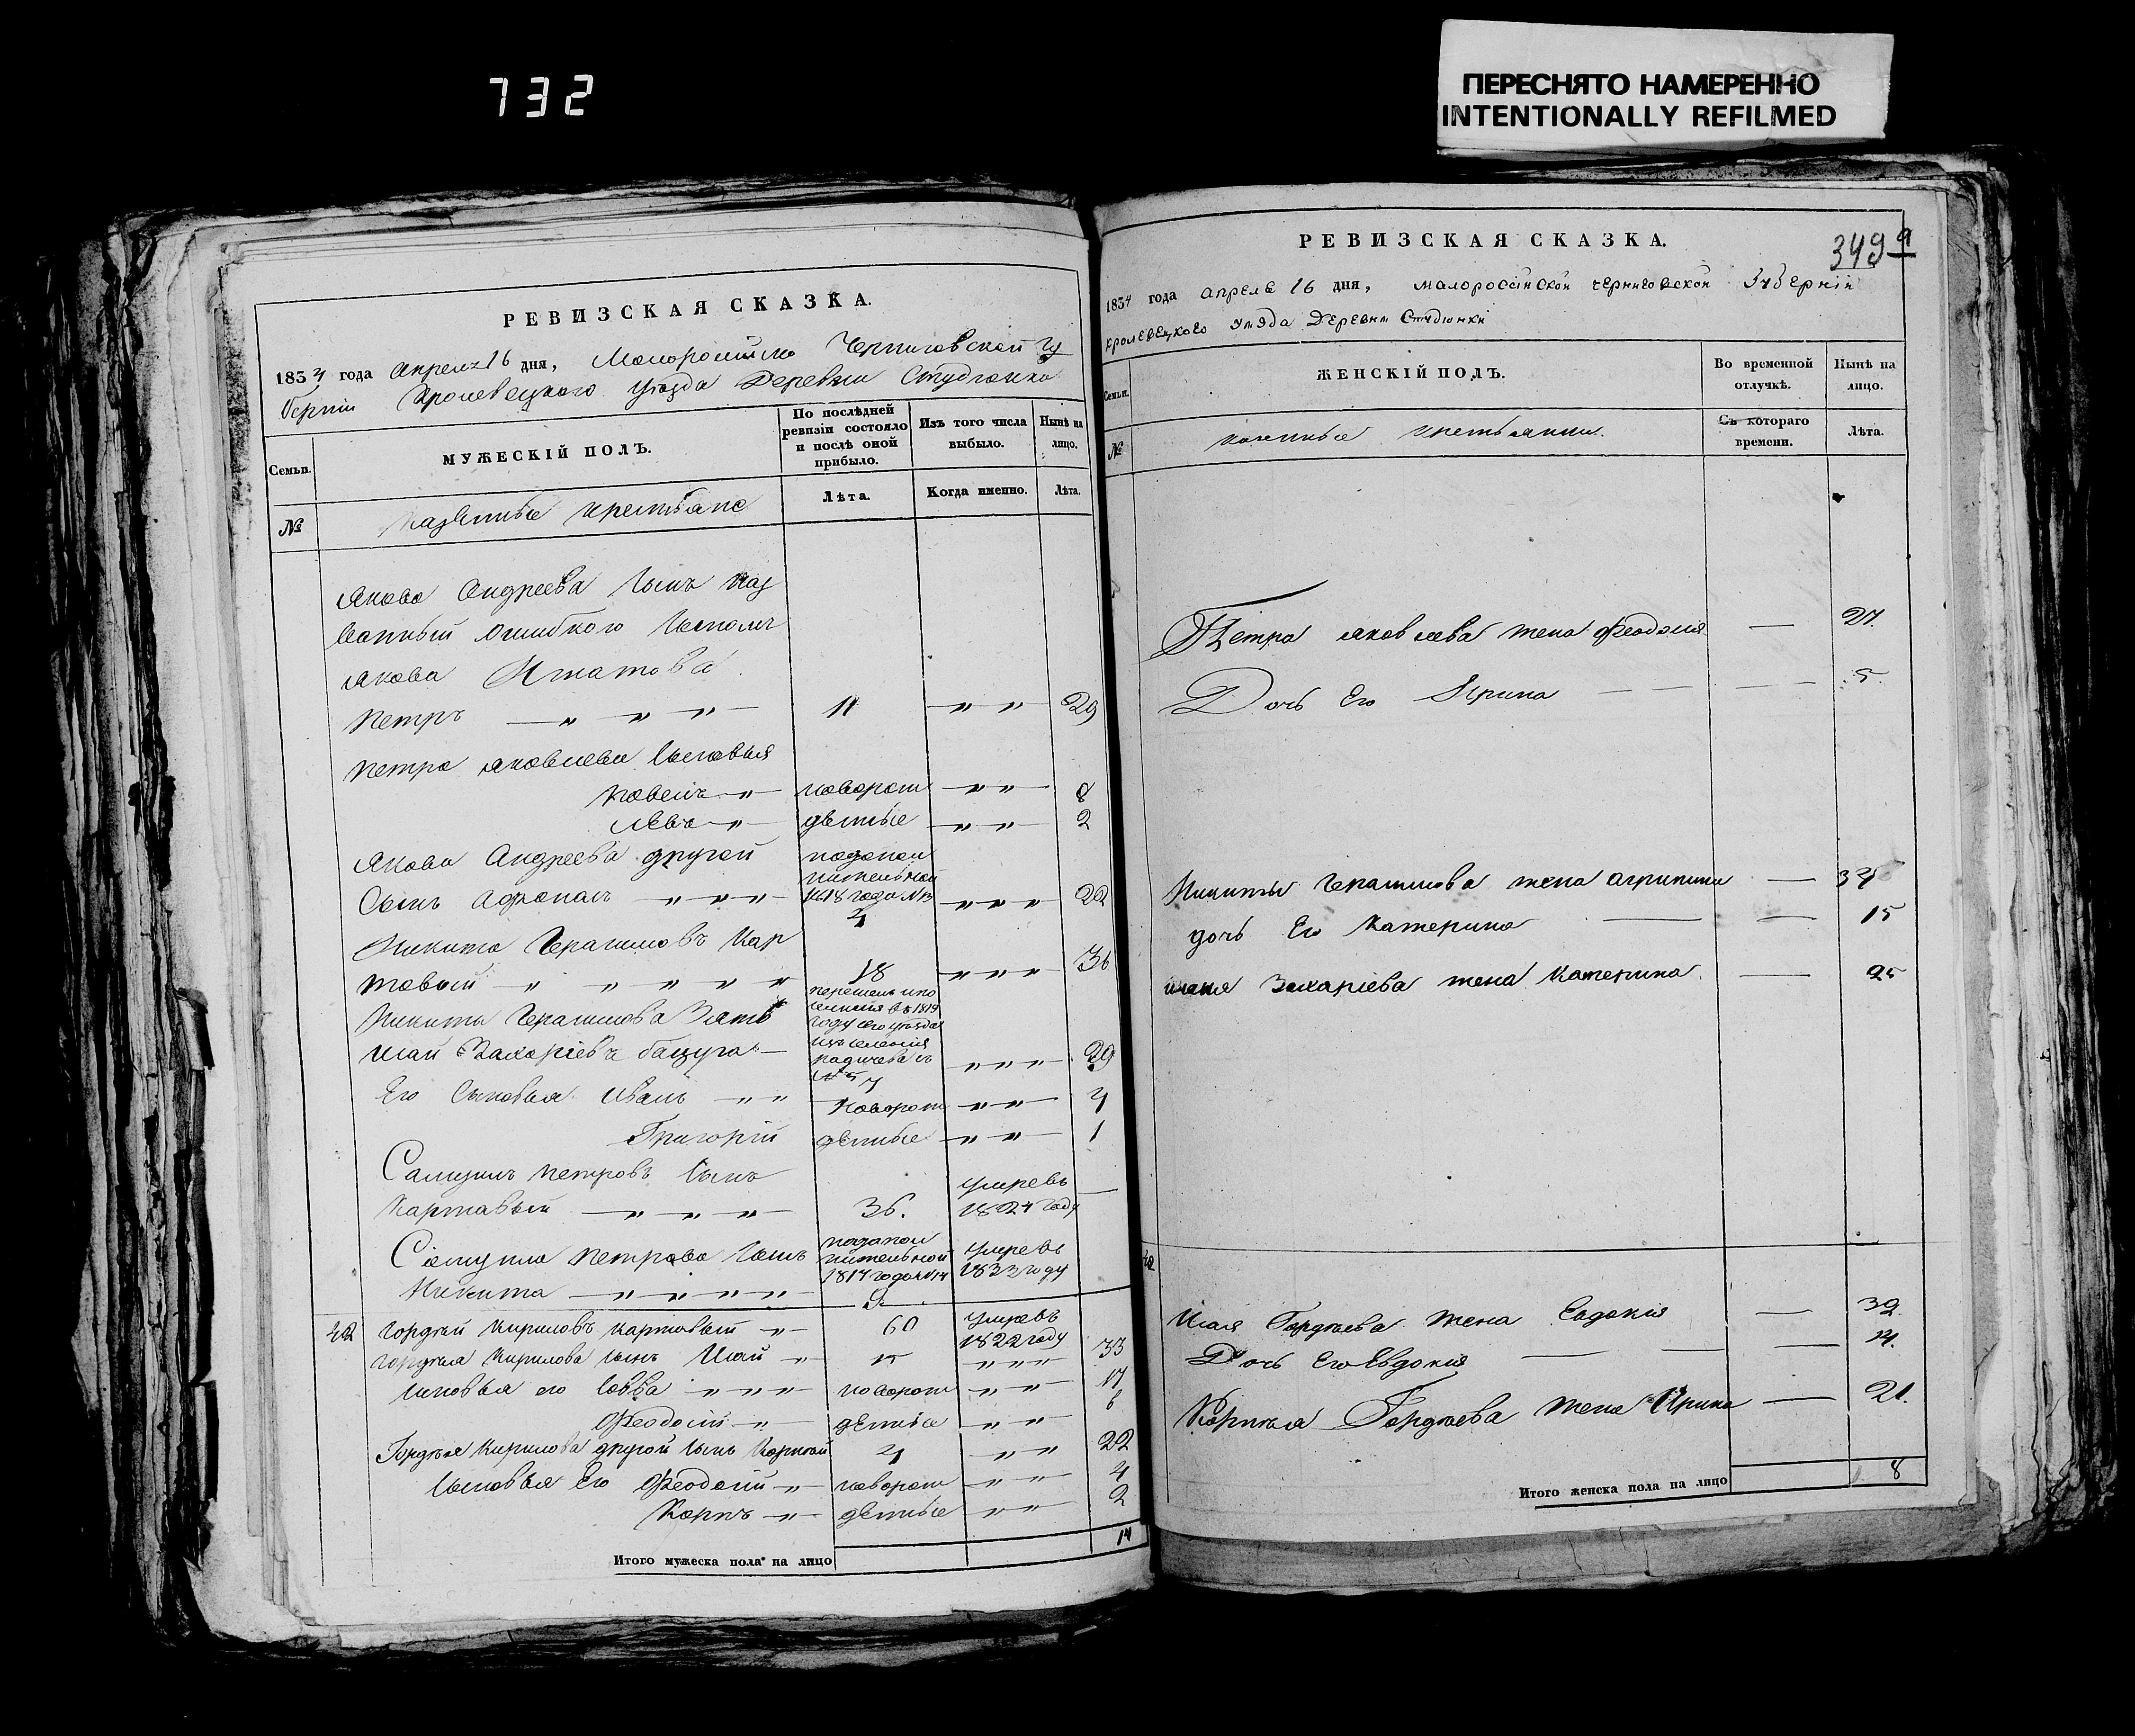 732
ПЕРЕСНЯТО НАМЕРЕННО
INTENTIONALLY REFILMED
РЕВИЗСКАЯ СКАЗКА.
1834 года Апреля 16 дня, Малоросійско Черниговской Гу
берніи Кролевецкого Уѣзда Деревни Студіонки
Семьи.
МУЖЕСКІЙ ПОЛЪ.
По послѣдней ревизіи состояло и послѣ оной прибыло.
Изъ того числа выбыло.
Нынѣ на лицо.
№
Казенные крестьяне
Лѣта.
Когда именно.
Лѣта.
Якова Андреева сынъ наз
ванный ошибкою сыномъ
Якова Игнатова
Петръ 11 29
Петра Яковлева сыновья
Павелъ новорож 8
Левъ денные 2
Якова Андреева другой
сынъ подопол
нительной
1818 года №13
4 22
Никита Герасимовъ Кар
товый 18 36
Никиты Герасимова Зять
Исай Захаріевъ
перешелъ
1819
году сего уѣзда
изъ селенія
№ 57
29
Его сыновья Иванъ новорож 4
Григорій денные 1
Самуилъ Петровъ сынъ
Картавый 36. умеръ
1824 году
Самуила Петрова сынъ
Никита
подопол
нительной
умеръ
1833 году
42 Гордѣй Кириловъ Картавый 60 умеръ
1822 году
Гордѣя Кирилова сынъ Исай 15 33
сыновья его Савва новорож 17
Феодосій денные 6
Гордѣя Кирилова другой сынъ Корнѣй 4 22
сыновья Его Феодосій новорож 4
Карпъ денные 2
Итого мужеска пола на лицо 14
РЕВИЗСКАЯ СКАЗКА.
349
1834 года апреля 16 дня, малоросійской черниговской губерніи
кролевецкого уѣзда Деревни Студіонки
Семьи.
ЖЕНСКІЙ ПОЛЪ.
Во временной отлучкѣ.
Нынѣ на лицо.
№
казенные крестьянки.
Съ котораго времени.
Лѣта.
Петра яковлева жена Феодосія — 27.
Дочь Его Ирина — 5
Никиты Герасимова жена агрипина — 34
дочь Его Катерина — 15
Исая Захаріева жена Катерина — 25
42
Исая Гордѣева жена Евдокія — 32
Дочь Его Евдокія — 14.
Корнѣя Гордѣева жена Ирина — 21.
Итого женска пола на лицо 8